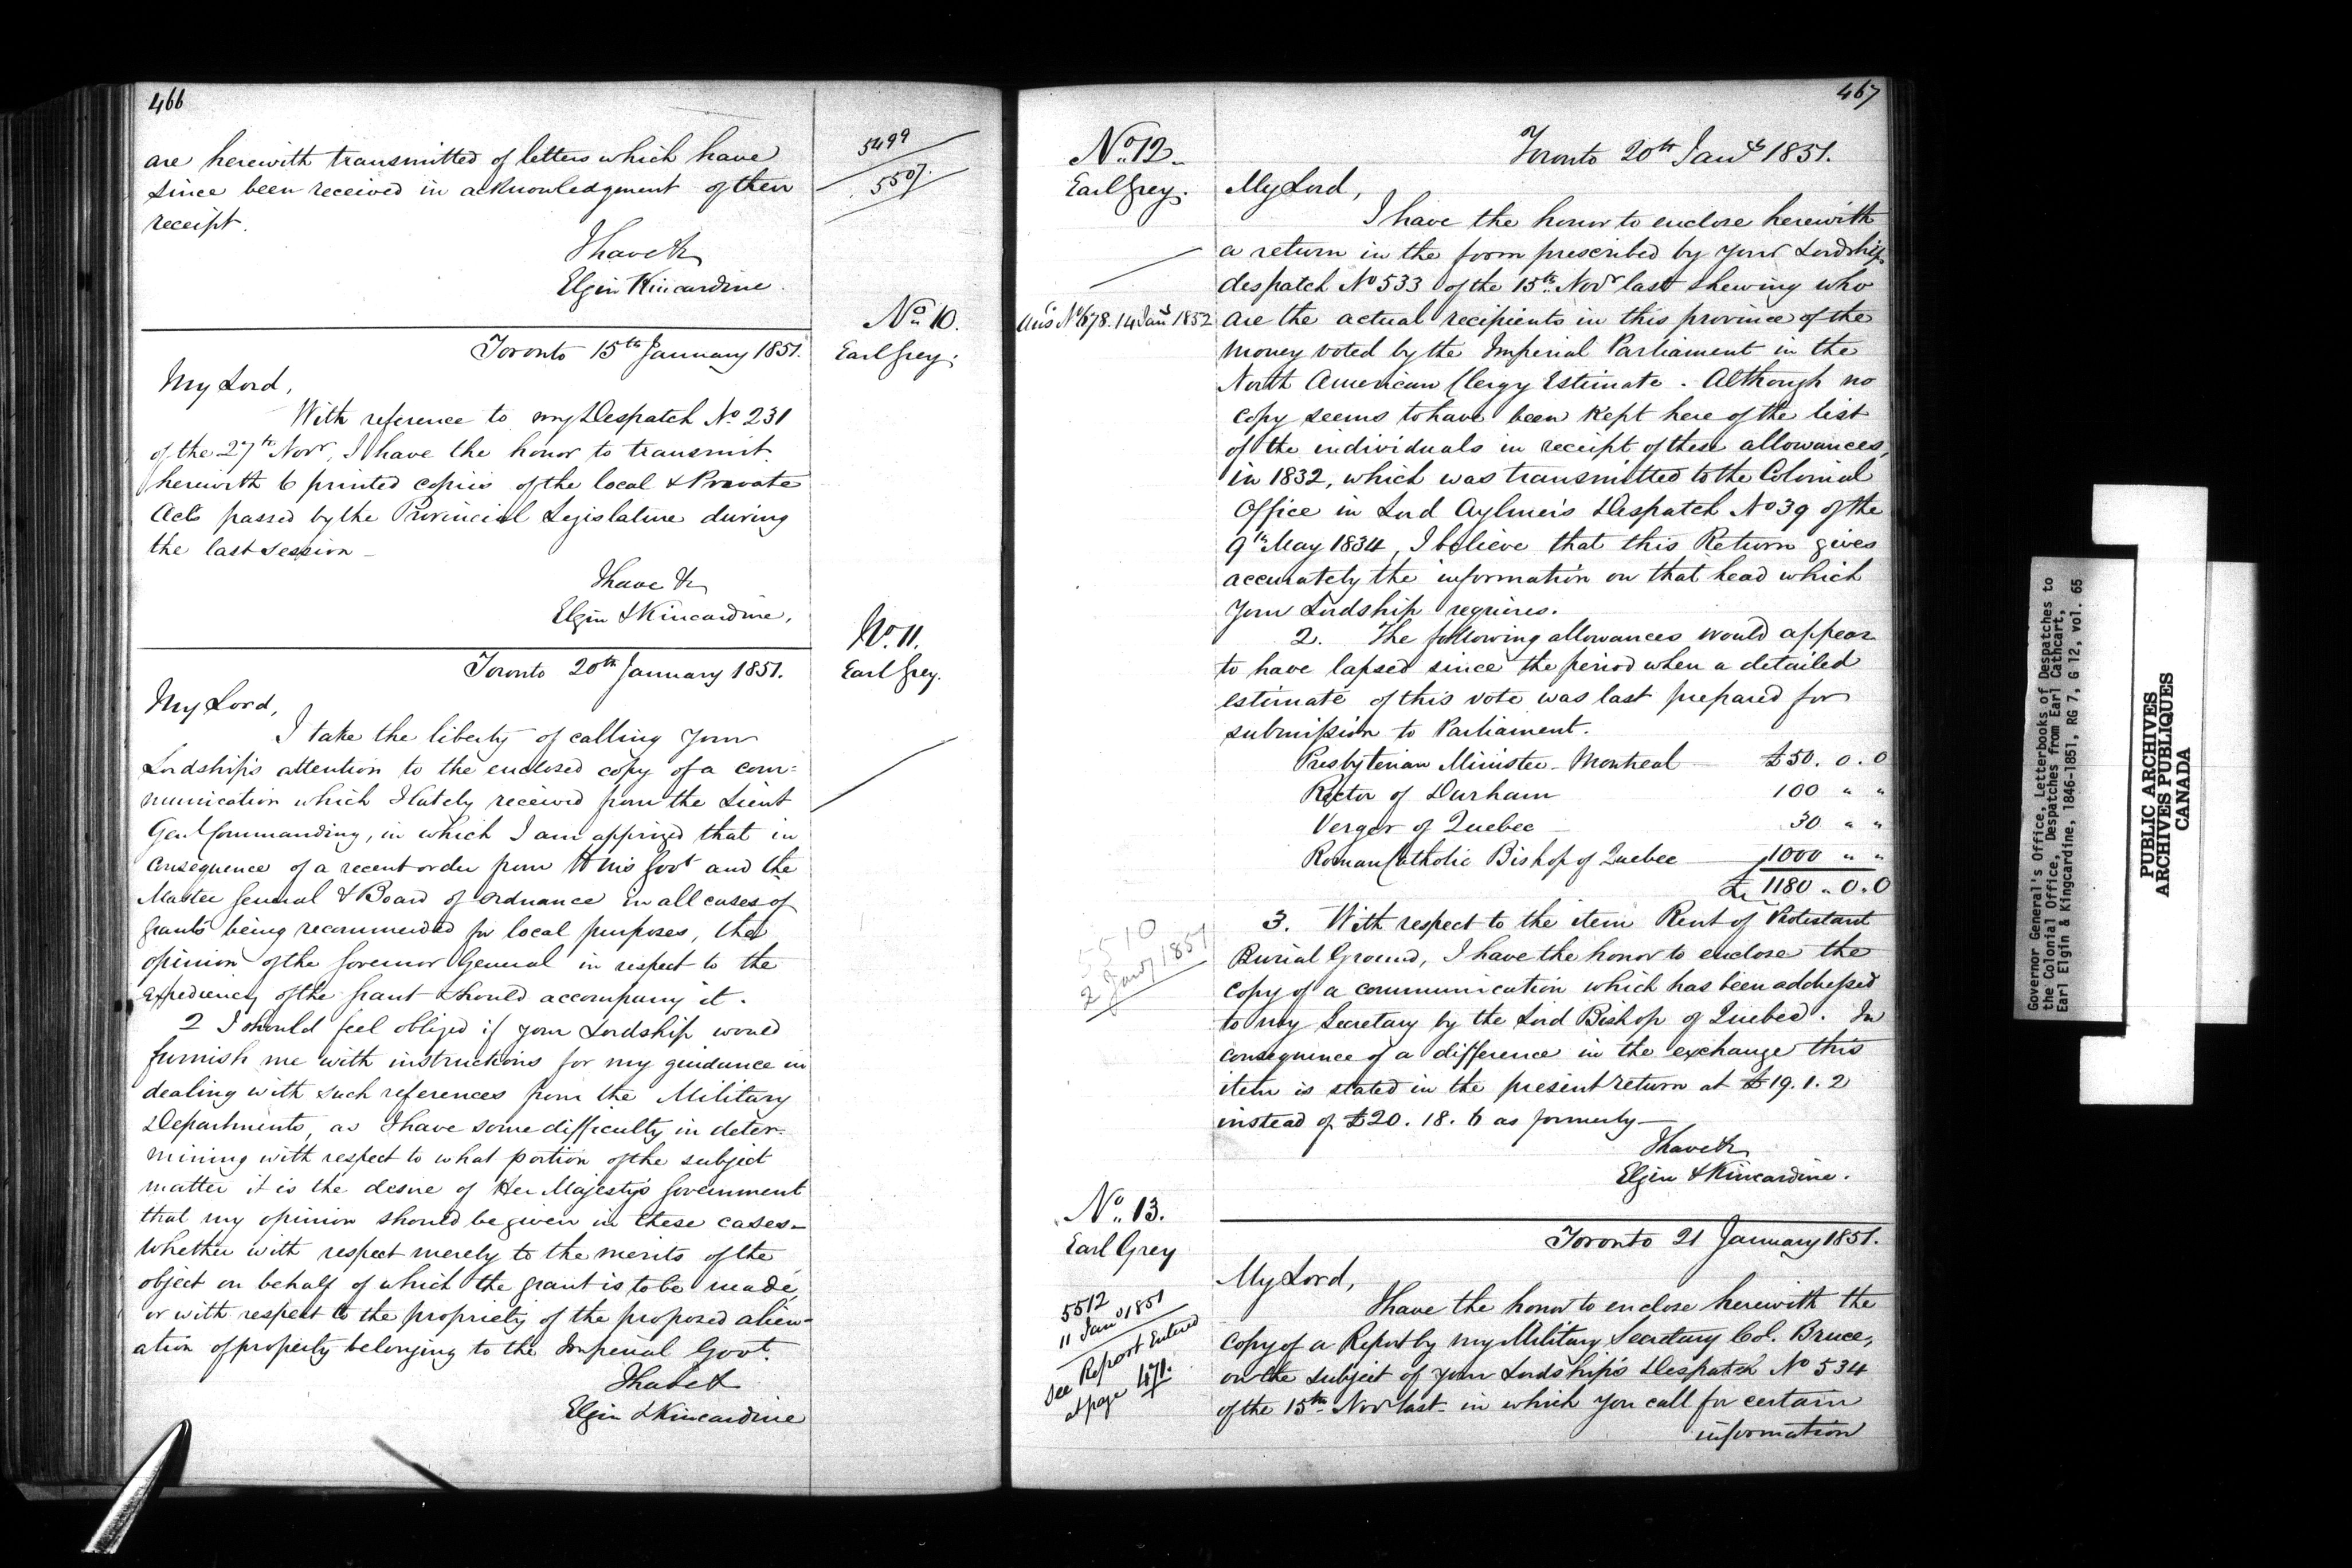 466
are herewith transmitted of letters which have
since been received in acknowledgement of their
receipt.
I have &c
Elgin Kincardine.
5499
5507.
No. 10.
Earl Grey.
Toronto 15th January 1851.
My Lord,
With reference to my Despatch No 231
of the 27th Novr, I have the honor to transmit
herewith 6 printed copies of the local & Private
Acts passed by the Provincial Legislature during
the last session _
I have &c
Elgin & Kincardine,
No. 11.
Earl Grey.
Toronto 20th January 1851.
My Lord,
I take the liberty of calling your
Lordship's attention to the enclosed copy of a com=
munication which I lately received from the Lieut
Genl Commanding, in which I am apprized that in
consequence of a recent order from H Ms Govt and the
Master General & Board of Ordnance in all cases of
grants being recommended for local purposes, the
opinion of the Governor General in respect to the
expediency of the grant should accompany it.
2 I should feel obliged if your Lordship would
furnish me with instructions for my guidance in
dealing with such references from the Military
Departments, as I have some difficulty in deter-
mining with respect to what portion of the subject
matter it is the desire of Her Majesty's Government
that my opinion should be given in these cases_
Whether with respect merely to the merits of the
object on behalf of which the grant is to be made,
or with respect to the propriety of the proposed alien-
ation of property belonging to the Imperial Govt.
I have &c
Elgin & Kincardine
467
No. 12_
Earl Grey.
Toronto 20th Jany 1851.
My Lord,
I have the honor to enclose herewith
a return in the form prescribed by your Lordship's
despatch No 533 of the 15th Novr last shewing who
Ans No 678. 14 Jany 1852
are the actual recipients in this province of the
money voted by the Imperial Parliament in the
North American Clergy Estimate. Although no
copy seems to have been kept here of the list
of the individuals in receipt of these allowances,
in 1832, which was transmitted to the Colonial
Office in Lord Aylmer's Despatch No 39 of the
9th May 1834, I believe that this Return gives
accurately the information on that head which
Your Lordship requires.
2. The following allowances would appear
to have lapsed since the period when a detailed
estimate of this vote was last prepared for
submission to Parliament.
Presbyterian Minister_ Montreal — £50. 0. 0
Rector of Durham 100 " "
Verger of Quebec — 30 " "
Roman Catholic Bishop of Quebec — 1000 " "
£ 1180. 0. 0
3. With respect to the item Rent of Protestant
Burial Ground, I have the honor to enclose the
copy of a communication which has been addressed
to my Secretary by the Lord Bishop of Quebec. In
consequence of a difference in the exchange this
item is stated in the present return at £19. 1. 2
instead of £20. 18. 6 as formerly—
5510
2 Jany 1851
I have &c
Elgin & Kincardine.
No. 13.
Earl Grey
Toronto 21 January 1851.
My Lord,
I have the honor to enclose herewith the
copy of a Report by my Military Secretary Col. Bruce,
on the subject of your Lordship's Despatch No 534
of the 15th Novr last_ in which you call for certain
information
5512
11 Jany 1851
See Report Entered
at page 471.
Governor General's Office, Letterbooks of Despatches to
the Colonial Office, Despatches from Earl Cathcart,
Earl Elgin & Kingcardine, 1846-1851, RG 7, G 12, vol. 65
PUBLIC ARCHIVES
ARCHIVES PUBLIQUES
CANADA